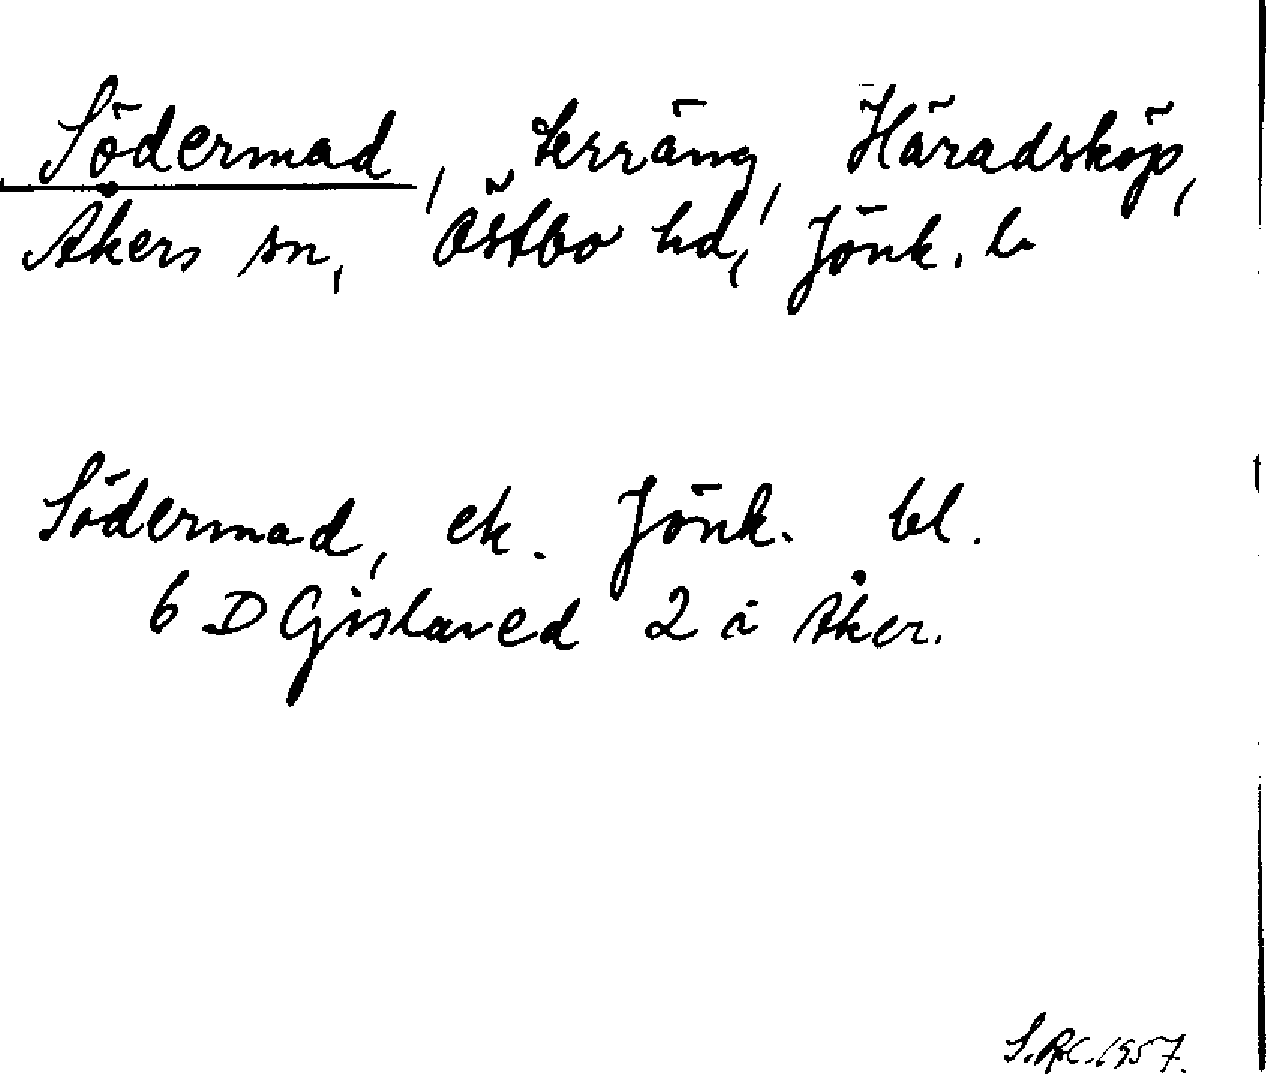 Södermad, terräng, Häradsköp,
Åkers sn, Östbo hd, Jönk. l.
Södermad, ek. Jönk. bl.
6 D Gislaved 2 i Åker.
1957.